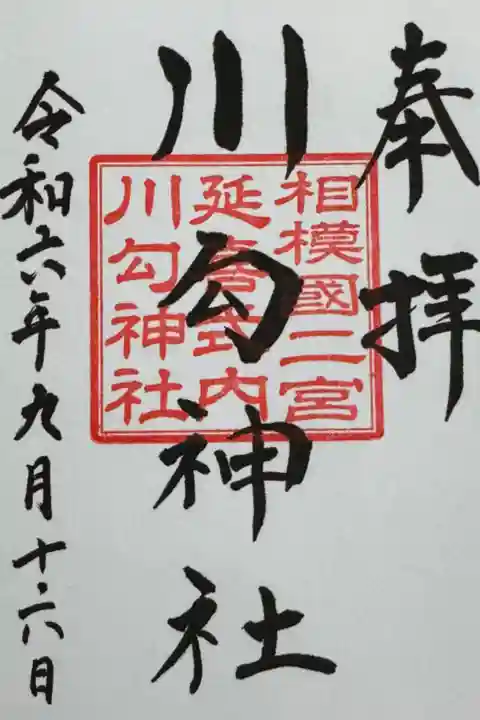 奉拝
相模國二宮
延喜式内
川勾神社
川勾神社
令和六年九月十六日